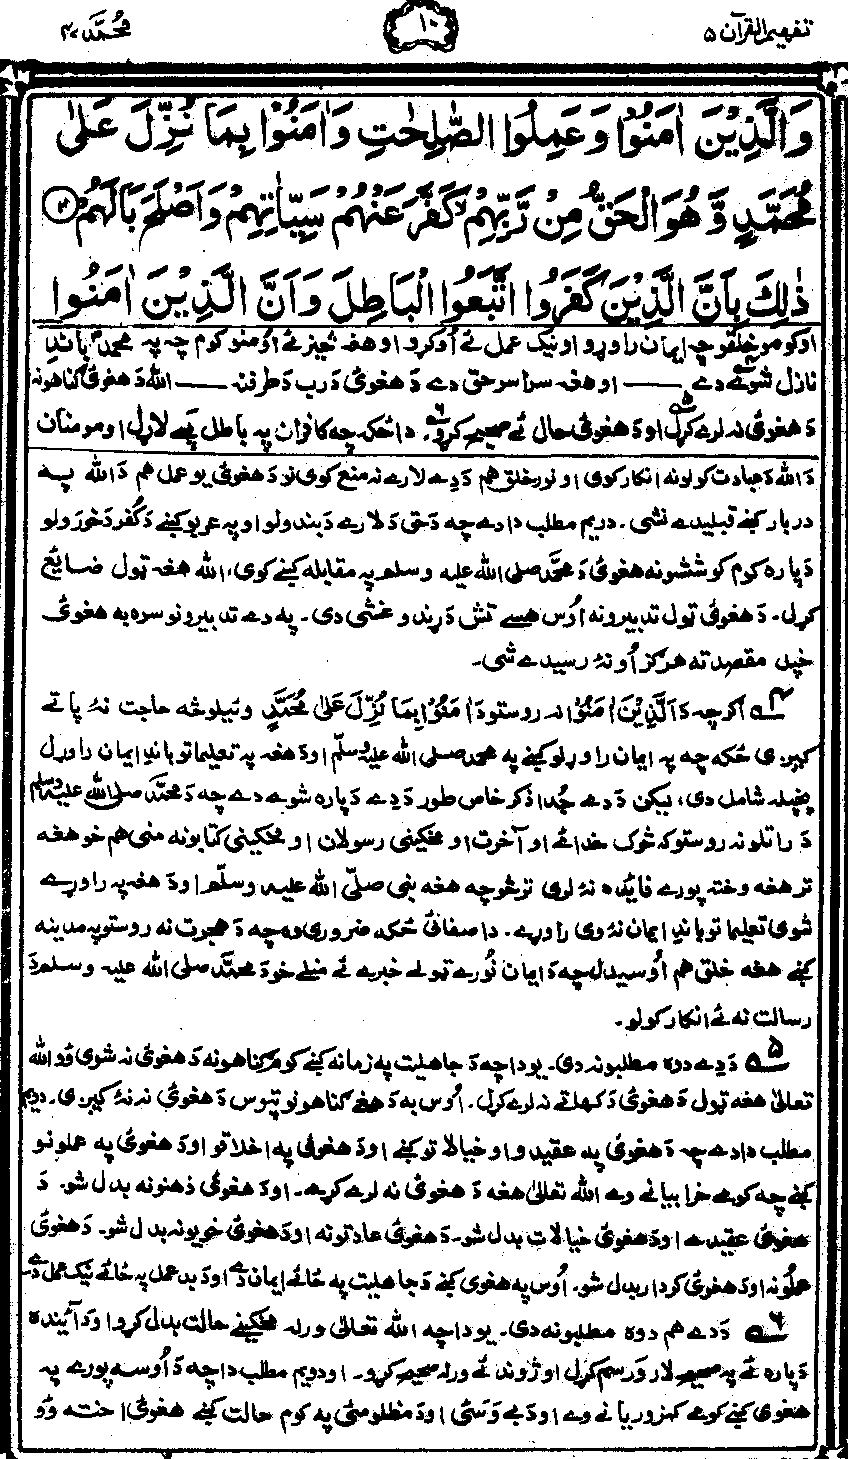 تفهيم القرآن ۵
۱۰
محمّد ۴۷
وَالَّذِيْنَ اٰمَنُوْا وَعَمِلُوا الصّٰلِحٰتِ وَاٰمَنُوْا بِمَا نُزِّلَ عَلٰى
مُحَمَّدٍ وَّهُوَ الْحَقُّ مِنْ رَّبِّهِمْ كَفَّرَ عَنْهُمْ سَيِّاٰتِهِمْ وَاَصْلَحَ بَالَهُمْ ۲
ذٰلِكَ بِاَنَّ الَّذِيْنَ كَفَرُوا اتَّبَعُوا الْبَاطِلَ وَاَنَّ الَّذِيْنَ اٰمَنُوا
او كومو خلقو چه ايمان راوړو او نيک عمل ئے اُوكړو او هغه څيز ئے اُومنو كوم چه په محمد باندِ
نازل شوے دے ـــــ او هغه سراسر حق دے دَ هغوئ دَ رب دَ طرفنه ـــــ الله دَ هغوئ ګناهونه
دَ هغوئ نه لرے كړل۵ او دَ هغوئ حال ئے صحيح كړو۶. دا ځكه چه كافران په باطل پسے لاړل او مومنان
دَ الله دَ عبادت كولو نه انكار كوى او نور خلق هم دَ دے لارے نه منع كوى نو دَ هغوئ يو عمل هم دَ الله په
دربار كښے قبليدے نشى. دريم مطلب دا دے چه دَ حق دَ لارے دَ بندولو او په عربو كښے دَ كُفر دَ خورولو
دَ پاره كوم كوششونه هغوئ دَ محمّد صلى الله عليه وسلم په مقابله كښے كوى، الله هغه ټول ضائع
كړل. دَ هغوئ ټول تدبيرونه اُوس هسے تش دَ ړندو غشى دى. په دے تدبيرونو سره به هغوئ
خپل مقصد ته هرګز اُو نۀ رسيدے شى.
۴ اګرچه دَ اَلَّذِيْنَ اٰمَنُوْا نه روستو دَ اٰمَنُوْا بِمَا نُزِّلَ عَلٰى مُحَمَّدٍ وئيلو څه حاجت نۀ پاتے
كيږى ځكه چه په ايمان راوړلو كښے په محمد صلى الله عليه وسلّم او دَ هغه په تعليماتو باندِ ايمان راوړل
پخپله شامل دى، ليكن دَ دے جُدا ذكر خاص طور دَ دے دَ پاره شوے دے چه دَ محمّد صلى الله عليه وسلم
دَ راتلو نه روستو كه څوک خدائے او آخرت او مخكينى رسولان او مخكينى كتابونه منى هم خو هغه
تر هغه وخته پورے فائده نۀ لرى ترڅو چه هغه نبى صلّى الله عليه وسلّم او دَ هغه په راوړے
شوى تعليماتو باندِ ايمان نۀ وى راوړے. دا صفائى ځكه ضرورى وه چه دَ هجرت نه روستو په مدينه
كښے هغه خلق هم اُوسيدل چه دَ ايمان نُورے ټولے خبرے ئے منلے خو دَ محمّد صلى الله عليه وسلم دَ
رسالت نه ئے انكار كولو.
۵ دَ دے دوه مطلبونه دى. يو دا چه دَ جاهليت په زمانه كښے كوم ګناهونه دَ هغوئ نه شوى وُو الله
تعالىٰ هغه ټول دَ هغوئ دَ كهاتے نه لرے كړل. اُوس به دَ هغے ګناهونو تپوس دَ هغوئ نه نۀ كيږى. دويم
مطلب دا دے چه دَ هغوئ په عقيدو او خيالاتو كښے او دَ هغوئ په اخلاقو او دَ هغوئ په عملونو
كښے چه كومے خرابيانے وے الله تعالىٰ هغه دَ هغوئ نه لرے كړے. او دَ هغوئ ذهنونه بدل شو. دَ
هغوئ عقيدے او دَ هغوئ خيالات بدل شو. دَ هغوئ عادتونه او دَ هغوئ خويونه بدل شو. دَ هغوئ
عملُونه او دَ هغوئ كردار بدل شو. اُوس په هغوى كښے دَ جاهليت په ځائے ايمان دے او دَ بد عمل په ځائے نيک عمل دے.
۶ دَ دے هم دوه مطلبونه دى. يو دا چه الله تعالىٰ ورله مخكينے حالت بدل كړو او دَ آئينده
دَ پاره ئے په صحيح لار ورسم كړل او ژوند ئے ورله صحيح كړو. او دويم مطلب دا چه دَ اُوسه پورے په
هغوى كښے كومے كمزوريانے وے او دَ بے وَسَئ او دَ مظلومئ په كوم حالت كښے هغوئ اخته وُو